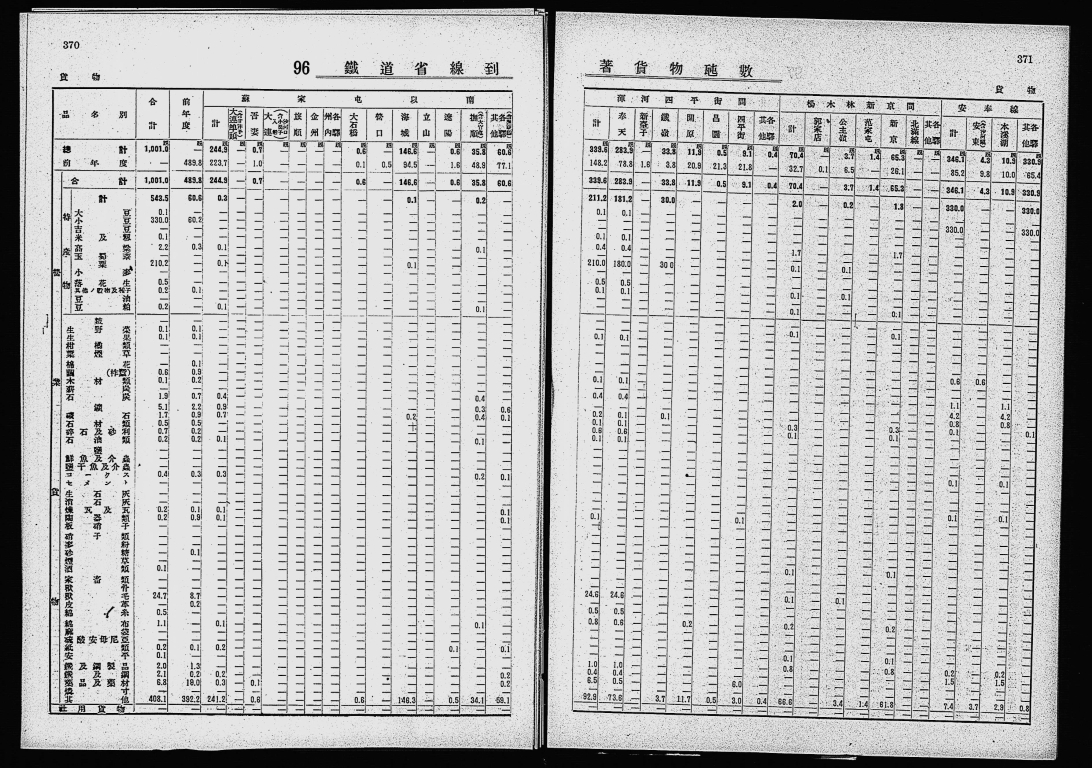 370
物 貨
96 鐵 道 省 線 到
品 名 別 合計 前年度 蘇家屯以南
計 吾妻 大連 旅順 金州 州內各驛 大石橋 營口 海城 立山 遼陽 撫順 其他各驛
總計 1,001.0 244.9 — 0.7 — — — — 0.6 — 146.6 — 0.6 35.8 60.6
前年度 489.8 223.7 — 1.0 — — — — 0.1 0.5 94.5 — 1.6 48.9 77.1
合計 1,001.0 489.8 244.9 — 0.7 — — — — 0.6 — 146.6 — 0.6 35.8 60.6
計 543.5 60.6 0.3 0.1 0.2
特產物
大豆 0.1
小豆 330.0 60.2
吉豆
米及籾 0.1
高粱 2.2 0.3 0.1 0.1
玉蜀黍
粟 210.2 0.1 0.1
小麥
落花生 0.5
其他ノ穀物及種子 0.2 0.1
豆油
豆粕 0.2 0.1 0.1
營業貨物
野菜 0.1 0.1
生果 0.1 0.1
柑橘類
葉煙草
棉花 0.1
繭(柞蠶) 0.6 0.9
木材類 0.1 0.2
薪炭
石炭 1.9 0.7 0.4 0.4
鑛 5.1 2.2 0.9 0.3 0.6
礦石 1.7 0.9 0.7 0.2 0.4 0.1
石材類 0.5 0.5
碎石及砂利 0.7 0.2
石油類 0.2 0.2 0.1 0.1
鹽
鮮魚及介蟲
鹽干魚及介蟲
コークス 0.4 0.3 0.3 0.2 0.1
セメント
生石灰
消石灰
煉瓦及瓦 0.2 0.1 0.1 0.1
陶器類 0.2 0.9 0.1 0.1
板硝子
硝子類
麥粉
砂糖 0.1
煙草
酒類 0.1
家畜類
獸骨
獸毛 24.7 8.7
皮革 0.2
綿糸 0.5
綿布 1.1 0.1 0.1
麻袋
硫酸安母尼亞
紙類 0.2 0.1 0.2 0.1 0.1
安平 0.1
鐵及鋼製品 2.0 1.3
鐵及鋼 2.1 0.2 0.2 0.2
藥品藥材 6.8 19.0 0.3 0.1 0.2
其他 408.1 392.2 241.2 — 0.6 — — — — 0.6 — 146.3 — 0.5 34.1 59.1
社用貨物
371
貨 物
著 貨 物 噸 數
渾河四平街間 楊木林新京間 安奉線
計 奉天 新臺子 鐵嶺 開原 昌圖 四平街 其他各驛 計 郭家店 公主嶺 范家屯 新京 北滿線 其他各驛 計 安東 本溪湖 其他各驛
339.6 283.9 — 33.8 11.9 0.5 9.1 0.4 70.4 — 3.7 1.4 65.3 — — 346.1 4.3 10.9 330.9
148.2 78.8 1.6 3.8 20.9 21.3 21.8 — 32.7 0.1 6.5 — 26.1 — — 85.2 9.8 10.0 65.4
339.6 283.9 — 33.8 11.9 0.5 9.1 0.4 70.4 — 3.7 1.4 65.3 — — 346.1 4.3 10.9 330.9
211.2 181.2 30.0 2.0 0.2 1.8 330.0 330.0
0.1 0.1
330.0 330.0
0.1 0.1
0.4 0.4 1.7 1.7
210.0 180.0 30.0 0.1 0.1
0.5 0.5
0.1 0.1
0.1 0.1
0.1 0.1
0.1 0.1 0.1 0.1
0.6 0.6
0.1 0.1
0.4 0.4
1.1 1.1
0.2 0.1 0.1 4.2 4.2
0.1 0.1 0.3 0.3 0.8 0.8
0.6 0.6 0.1 0.1 0.1 0.1
0.1 0.1
0.1 0.1
0.1 0.1 0.1 0.1
0.1 0.1
24.6 24.6
0.1 0.1
0.5 0.5
0.8 0.6 0.2
0.2 0.2
0.1 0.1
1.0 1.0 0.8 0.8
0.4 0.4 0.2 0.2
6.5 0.5 6.0 1.5 1.5
92.9 73.6 — 3.7 11.7 0.5 3.0 0.4 66.6 — 3.4 1.4 61.8 — — 7.4 3.7 2.9 0.8